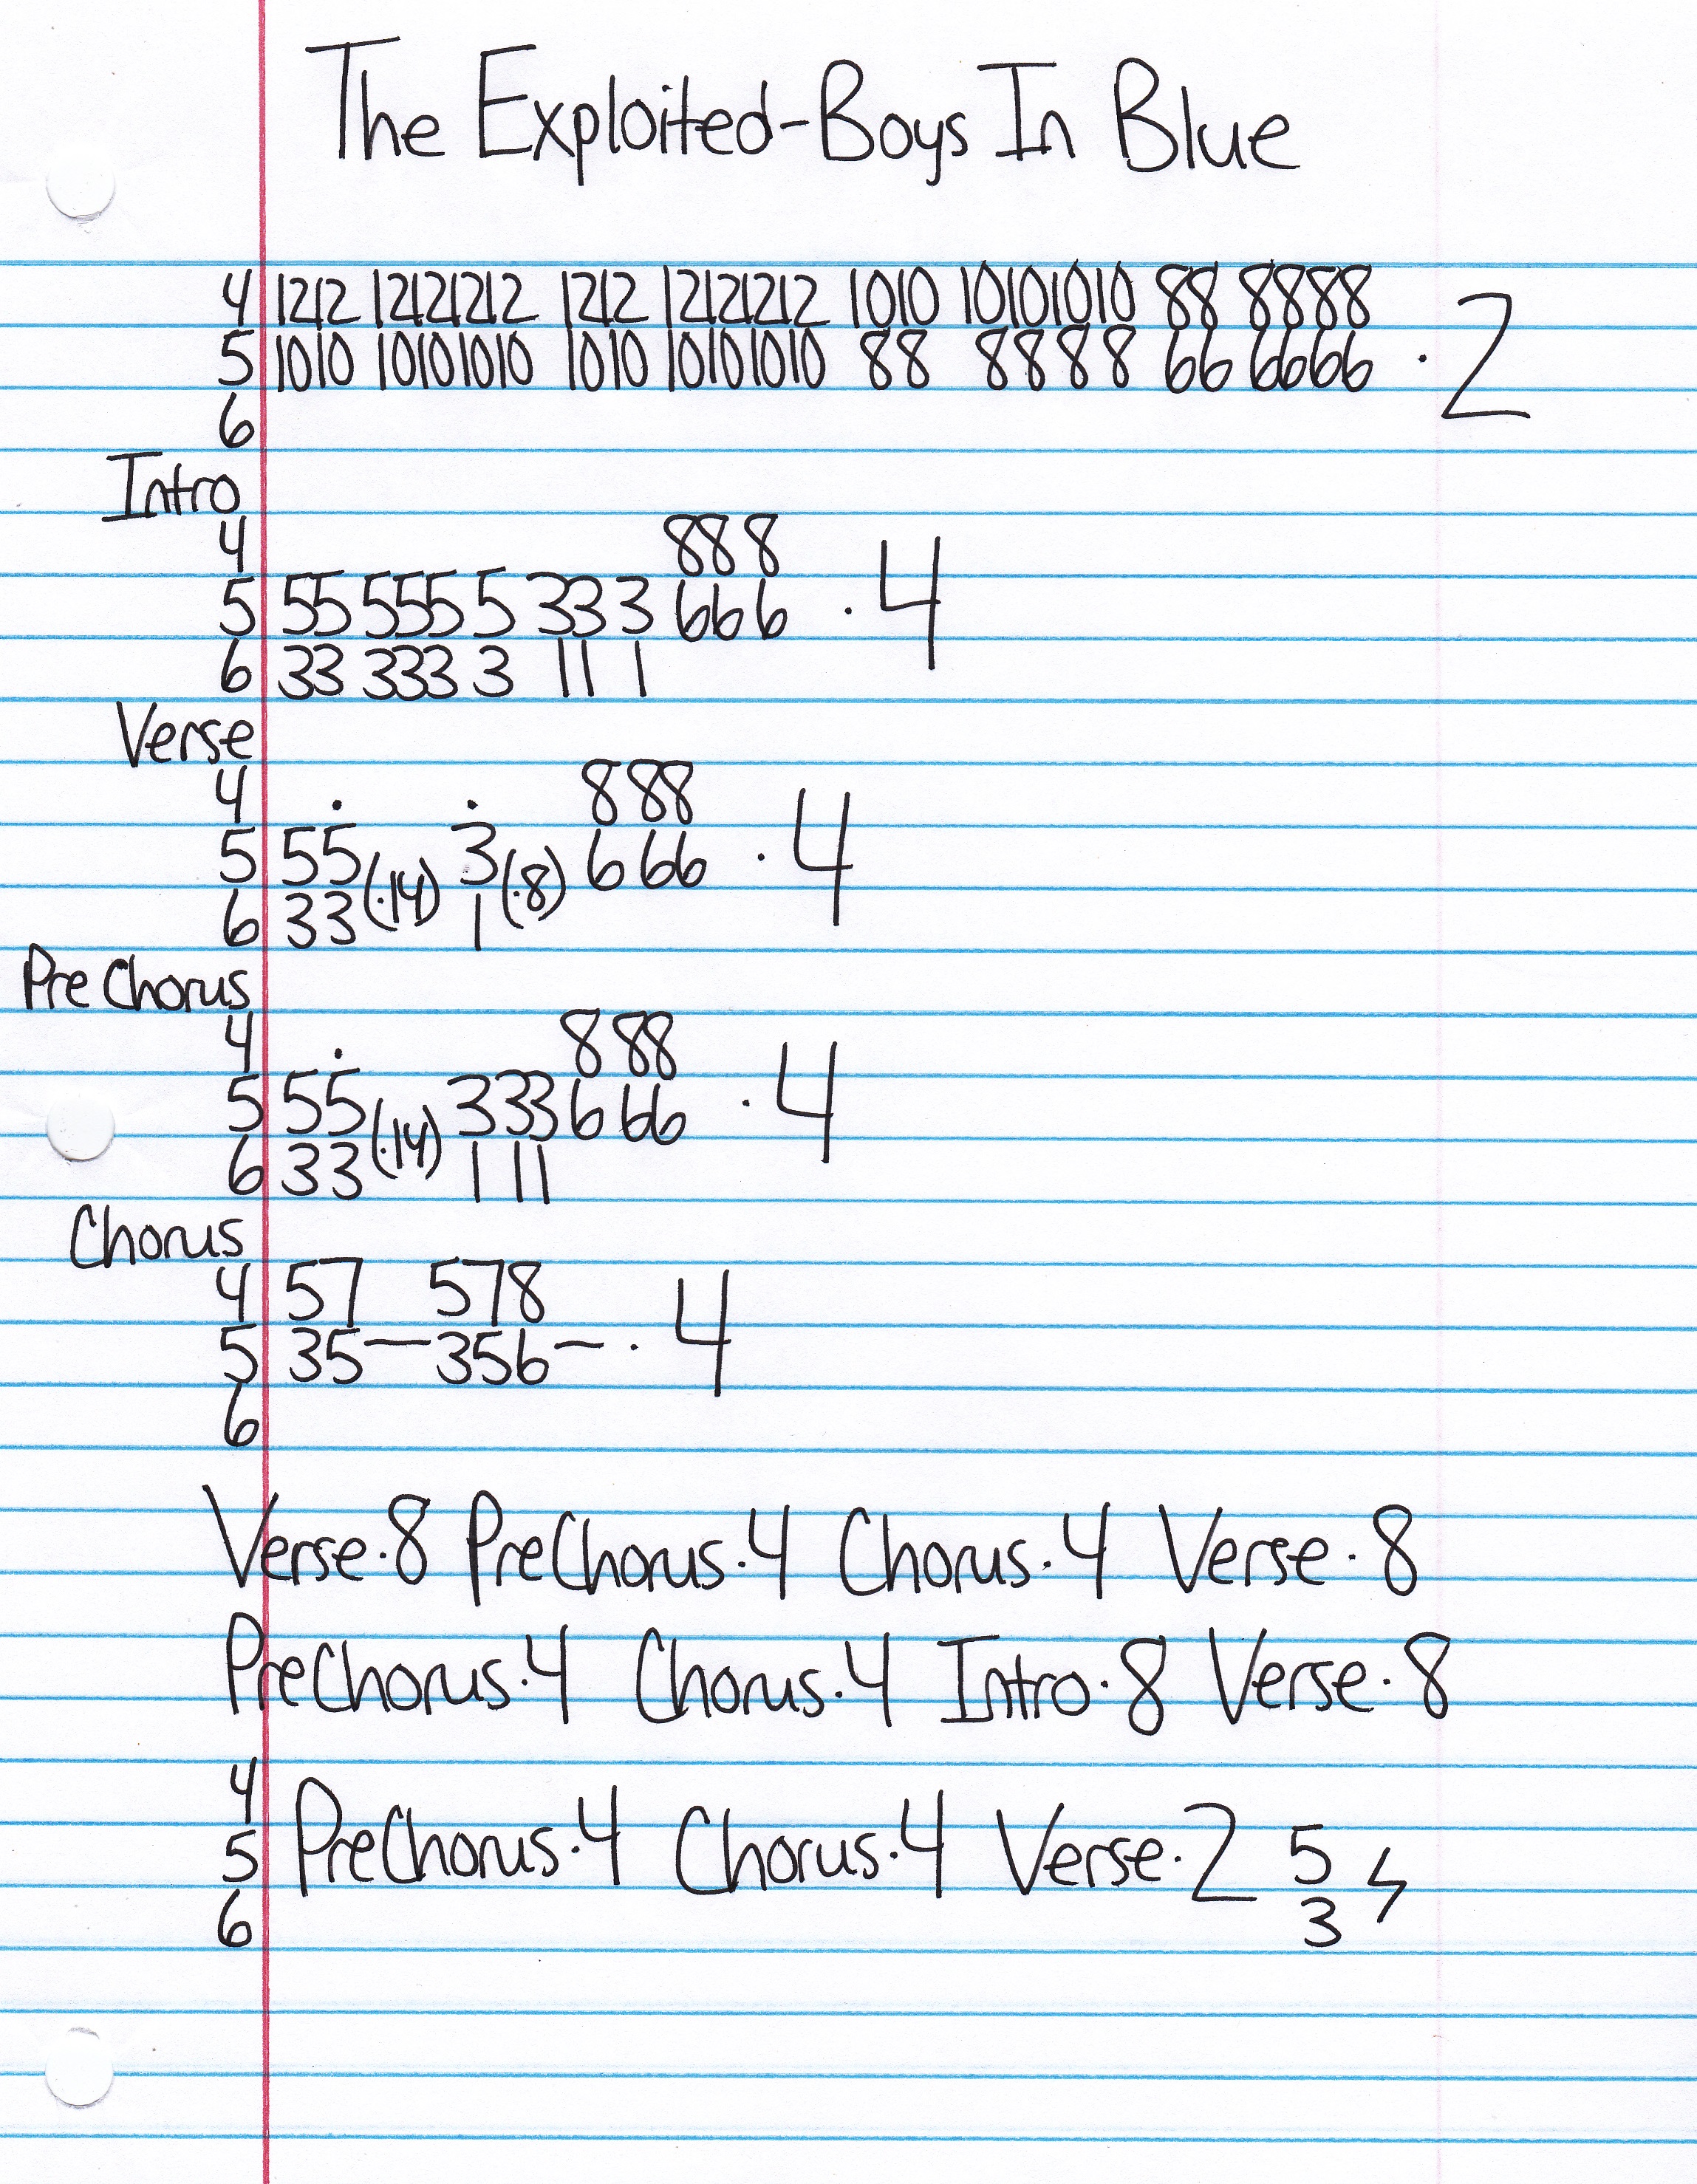 The Exploited-Boys In Blue
4 1212 12121212 1212 12121212 1010 10101010 88 8888
5 1010 10101010 1010 10101010 88 8888 66 6666 · 2
6
Intro
4 888
5 55 555 5 333 666 · 4
6 33 333 3 11 1
Verse
4 . . 8 88
5 55 (·14) 3 (·8) 6 66 · 4
6 33 1
Pre Chorus
4 . 8 88
5 55 (·14) 333 6 66 · 4
6 33 1 11
Chorus
4 57 578
5 35—356— · 4
6
Verse·8 PreChorus·4 Chorus·4 Verse·8
PreChorus·4 Chorus·4 Intro·8 Verse·8
4
5 PreChorus·4 Chorus·4 Verse·2 5
6 3